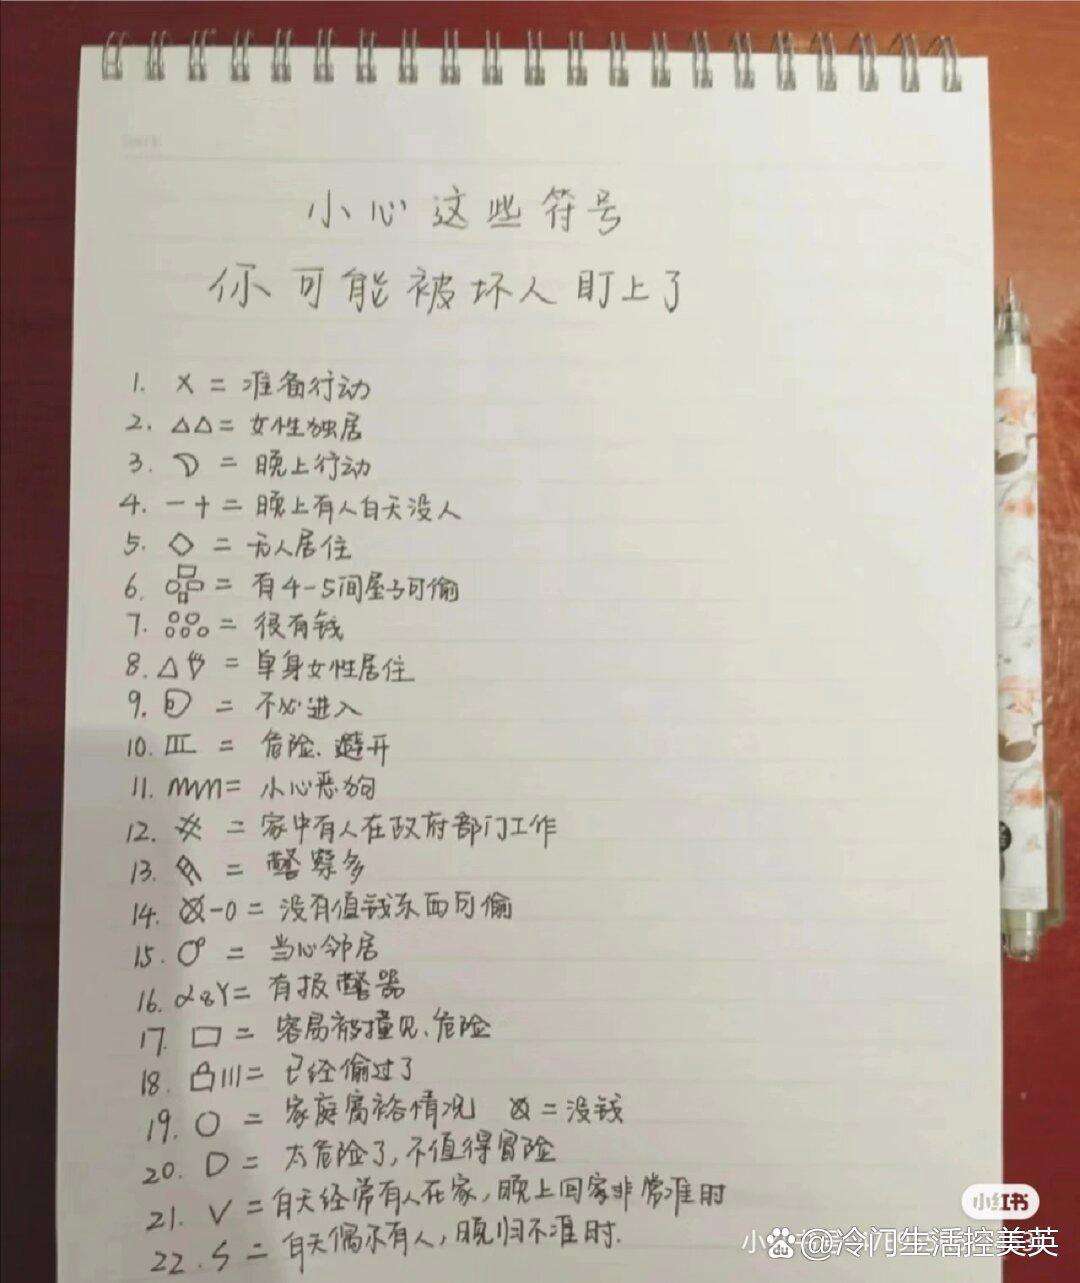 小心这些符号
你可能被坏人盯上了
1. × = 准备行动
2. △△ = 女性独居
3. = 晚上行动
4. 一 + = 晚上有人白天没人
5. ◇ = 无人居住
6. = 有4-5间屋子可偷
7. = 很有钱
8. △ = 单身女性居住
9. = 不必进入
10. = 危险、避开
11. = 小心恶狗
12. = 家中有人在政府部门工作
13. = 警察多
14. -0 = 没有值钱东西可偷
15. = 当心邻居
16. = 有报警器
17. □ = 容易被撞见、危险
18. = 已经偷过了
19. ○ = 家庭富裕情况 = 没钱
20. D = 太危险了,不值得冒险
21. V = 白天经常有人在家,晚上回家非常准时
22. S = 白天偶尔有人,晚归不准时.
小红书
@冷闪生活控美英